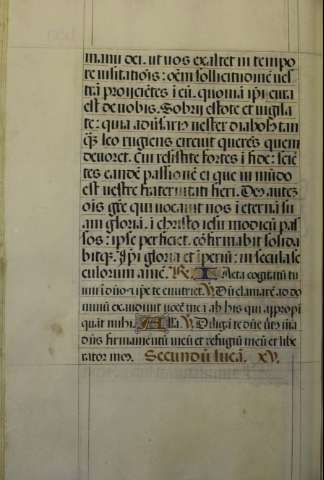 manu dei. ut vos exaltet in tempo
re visitatiõis: oẽm sollicitudinẽ ves
trã proijciẽtes ĩ eũ. quoniã ipi cura
est de vobis. Sobrij estote et vigila
te: quia adũsari⁹ vester diabol⁹ tan
q̃ȝ leo rugiens circuit querẽs quem
devoret. Cui resistite fortes ĩ fide: sciẽ
tes eandẽ passionẽ ei que in mũdo
est vestre fraternitati fieri. De⁹ autẽȝ
oĩs grẽ qui vocavit nos ĩ eternã su
am gloriã. ĩ christo iesu modicũ pas
sos: ipse perficiet. cõfirmabit solida
bitqȝ. Ipi gloria et ĩperiũ: in secula se
culorum amẽ. R. Iacta cogitatũ tu
um ĩ dño: et ipe te enutriet. V. Dũ clamarẽ ad do
minũ exaudivit vocẽ meã ab his qui appropi
quãt mihi. Alla. V. Diligã te dñe virt⁹ mã
dñs firmamentũ meũ et refugiũ meũ et libe
rator me⁹. Secundũ lucã. xv.